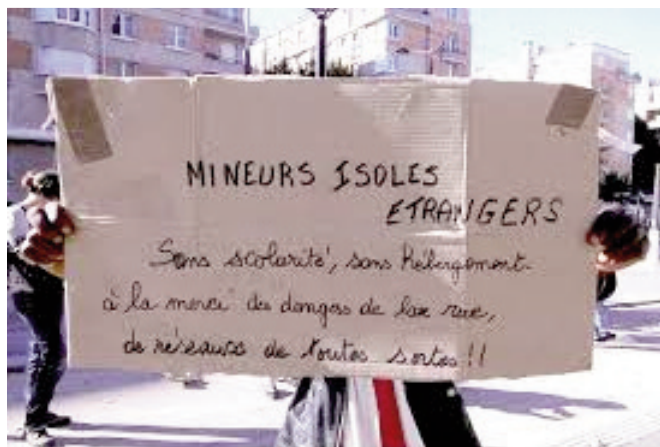 MINEURS ISOLES
ETRANGERS
Sans scolarité, sans hébergement
à la merci des dangers de lax rue,
de réseaux de toutes sortes !!